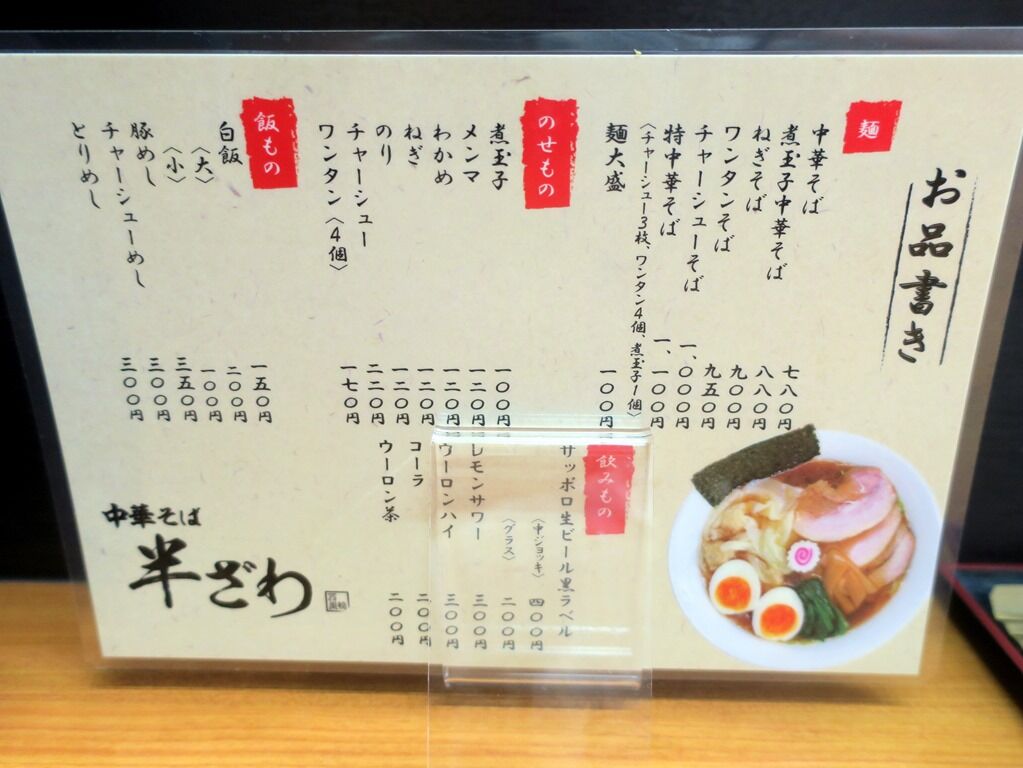 お品書き
麺
中華そば 七八〇円
煮玉子中華そば 八八〇円
ねぎそば 九〇〇円
ワンタンそば 九五〇円
チャーシューそば 一、〇〇〇円
特中華そば 一、一〇〇円
〈チャーシュー3枚、ワンタン4個、煮玉子1個〉
麺大盛 一〇〇円
のせもの
煮玉子 一〇〇円
メンマ 一二〇円
わかめ 一二〇円
ねぎ 一二〇円
のり 一二〇円
チャーシュー 二二〇円
ワンタン〈4個〉 一七〇円
飯もの
白飯 一五〇円
〈大〉 二〇〇円
〈小〉 一〇〇円
豚めし 三五〇円
チャーシューめし 三〇〇円
とりめし 三〇〇円
飲みもの
サッポロ生ビール黒ラベル
〈中ジョッキ〉 四〇〇円
〈グラス〉 二〇〇円
レモンサワー 三〇〇円
ウーロンハイ 三〇〇円
コーラ 二〇〇円
ウーロン茶 二〇〇円
中華そば
半ざわ